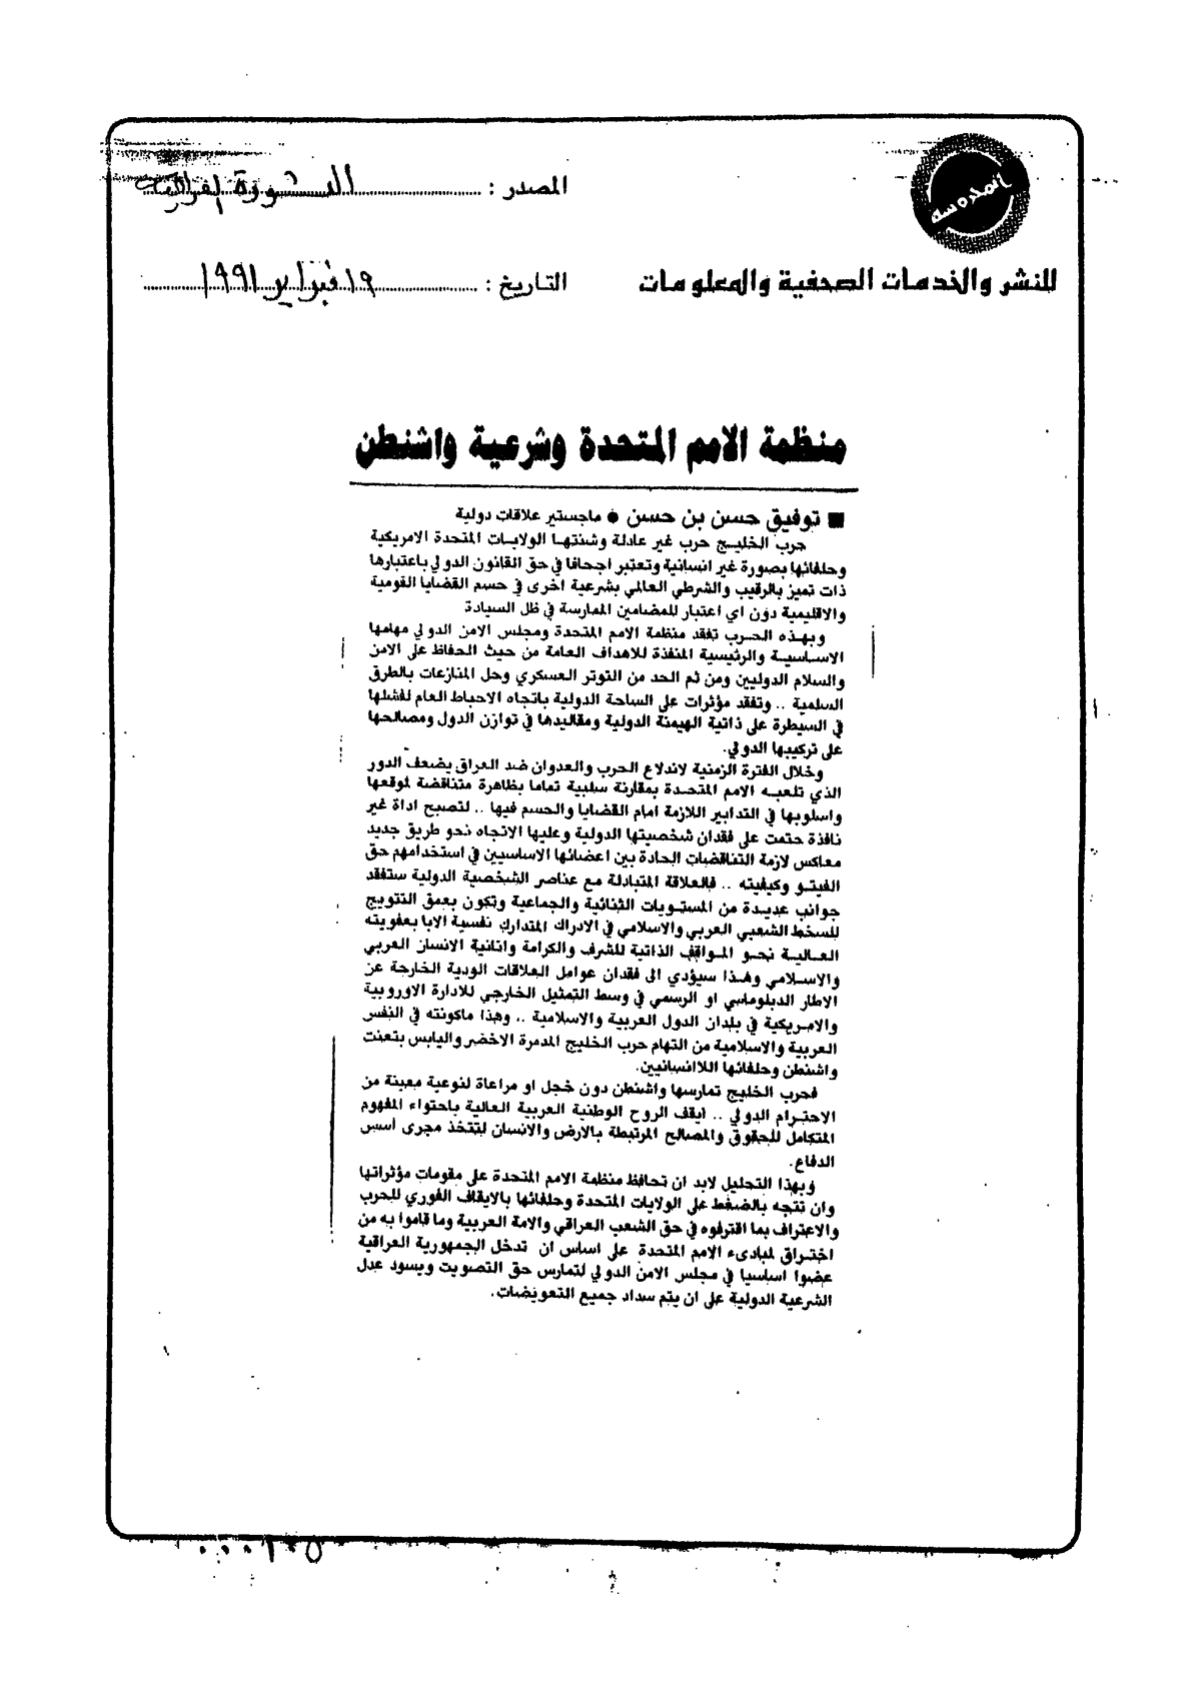 المحروسة
المصدر : الثورة العراقية
للنشر والخدمات الصحفية والمعلومات
التاريخ : ١٩ فبراير ١٩٩١
منظمة الامم المتحدة وشرعية واشنطن
■ توفيق حسن بن حسن ● ماجستير علاقات دولية
حرب الخليج حرب غير عادلة وشنتها الولايات المتحدة الامريكية
وحلفائها بصورة غير انسانية وتعتبر اجحافا في حق القانون الدولي باعتبارها
ذات تميز بالرقيب والشرطي العالمي بشرعية اخرى في حسم القضايا القومية
والاقليمية دون اي اعتبار للمضامين الممارسة في ظل السيادة
وبهذه الحرب تفقد منظمة الامم المتحدة ومجلس الامن الدولي مهامها
الاساسية والرئيسية المنفذة للاهداف العامة من حيث الحفاظ على الامن
والسلام الدوليين ومن ثم الحد من التوتر العسكري وحل المنازعات بالطرق
السلمية .. وتفقد مؤثرات على الساحة الدولية باتجاه الاحباط العام لفشلها
في السيطرة على ذاتية الهيمنة الدولية ومقاليدها في توازن الدول ومصالحها
على تركيبها الدولي.
وخلال الفترة الزمنية لاندلاع الحرب والعدوان ضد العراق يضعف الدور
الذي تلعبه الامم المتحدة بمقارنة سلبية تماما بظاهرة متناقضة لموقعها
واسلوبها في التدابير اللازمة امام القضايا والحسم فيها .. لتصبح اداة غير
نافذة حتمت على فقدان شخصيتها الدولية وعليها الاتجاه نحو طريق جديد
معاكس لازمة التناقضات الحادة بين اعضائها الاساسيين في استخدامهم حق
الفيتو وكيفيته .. فالعلاقة المتبادلة مع عناصر الشخصية الدولية ستفقد
جوانب عديدة من المستويات الثنائية والجماعية وتكون بعمق التتويج
للسخط الشعبي العربي والاسلامي في الادراك المتدارك نفسية الابا بعفويته
العالية نحو المواقف الذاتية للشرف والكرامة وانانية الانسان العربي
والاسلامي وهذا سيؤدي الى فقدان عوامل العلاقات الودية الخارجة عن
الاطار الدبلوماسي او الرسمي في وسط التمثيل الخارجي للادارة الاوروبية
والامريكية في بلدان الدول العربية والاسلامية .. وهذا ماكونته في النفس
العربية والاسلامية من التهام حرب الخليج المدمرة الاخضر واليابس بتعنت
واشنطن وحلفائها اللاانسانيين.
فحرب الخليج تمارسها واشنطن دون خجل او مراعاة لنوعية معينة من
الاحترام الدولي .. ايقف الروح الوطنية العربية العالية باحتواء المفهوم
المتكامل للحقوق والمصالح المرتبطة بالارض والانسان لتتخذ مجرى أسس
الدفاع.
وبهذا التحليل لابد ان تحافظ منظمة الامم المتحدة على مقومات مؤثراتها
وان تتجه بالضغط على الولايات المتحدة وحلفائها بالايقاف الفوري للحرب
والاعتراف بما اقترفوه في حق الشعب العراقي والامة العربية وما قاموا به من
اختراق لمبادىء الامم المتحدة على اساس ان تدخل الجمهورية العراقية
عضوا اساسيا في مجلس الامن الدولي لتمارس حق التصويت ويسود عدل
الشرعية الدولية على ان يتم سداد جميع التعويضات.